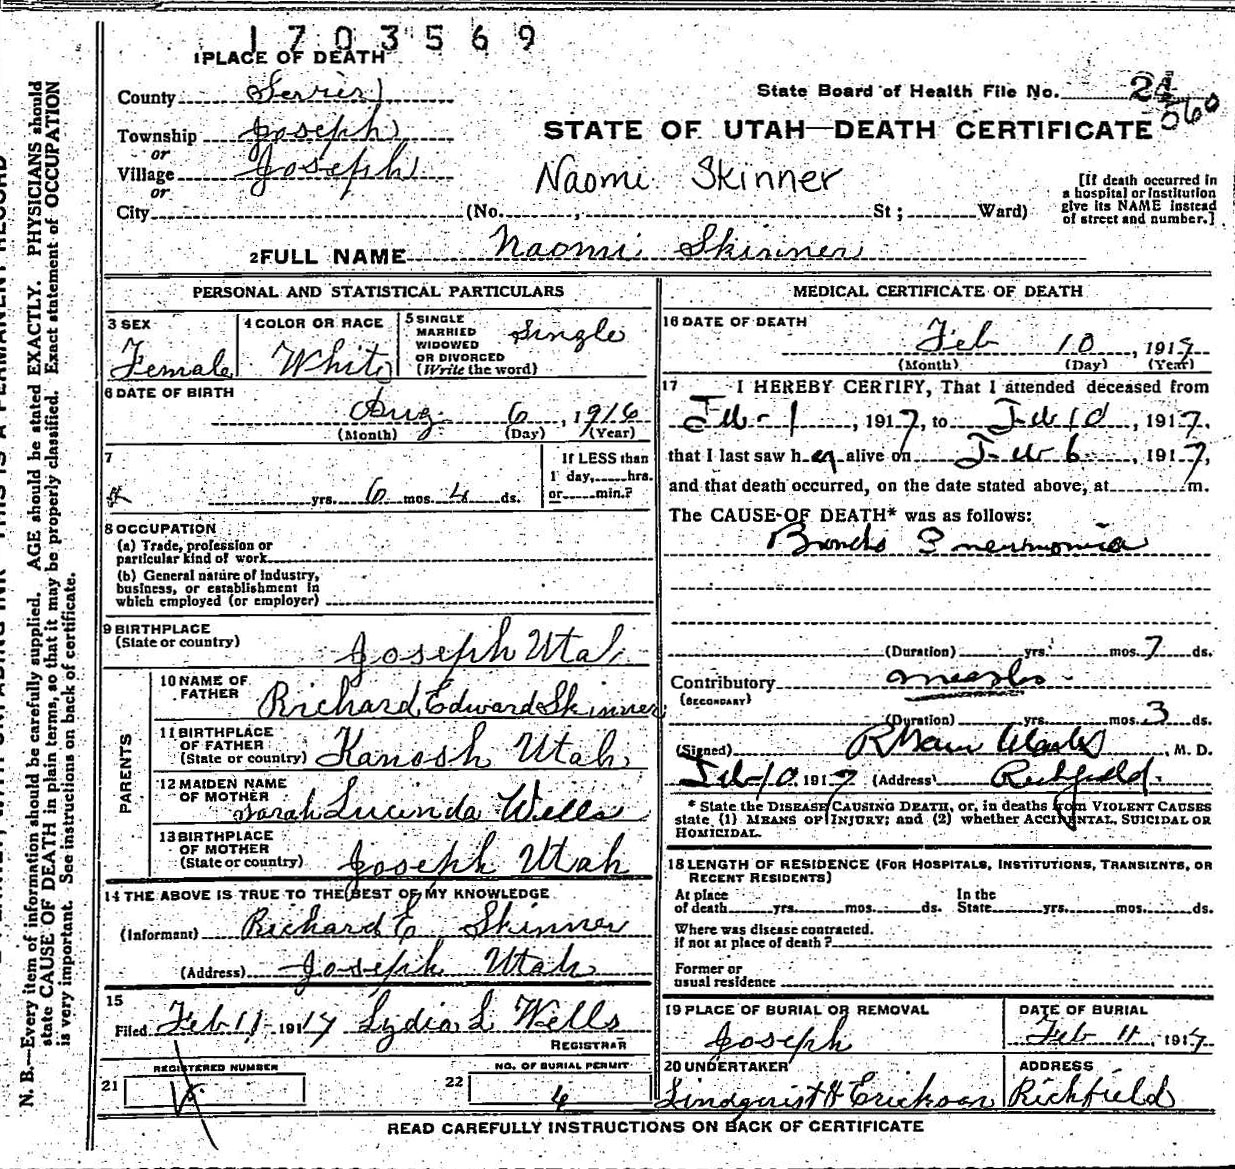 1703569
1 PLACE OF DEATH
County Sevier
State Board of Health File No. 24
560
Township Joseph
or
STATE OF UTAH—DEATH CERTIFICATE
Village Joseph
or
Naomi Skinner
[If death occurred in
a hospital or institution
give its NAME instead
of street and number.]
City (No. , St; Ward)
2 FULL NAME Naomi Skinner
PERSONAL AND STATISTICAL PARTICULARS
3 SEX
Female
4 COLOR OR RACE
White
5 SINGLE
MARRIED
WIDOWED
OR DIVORCED
(Write the word)
Single
6 DATE OF BIRTH
Aug. 6, 1916
(Month) (Day) (Year)
7
yrs. 6 mos. 4 ds.
If LESS than
1 day, hrs.
or min.?
8 OCCUPATION
(a) Trade, profession or
particular kind of work
(b) General nature of industry,
business, or establishment in
which employed (or employer)
9 BIRTHPLACE
(State or country)
Joseph Utah
PARENTS
10 NAME OF
FATHER
Richard Edward Skinner
11 BIRTHPLACE
OF FATHER
(State or country)
Kanosh Utah
12 MAIDEN NAME
OF MOTHER
Sarah Lucinda Wells
13 BIRTHPLACE
OF MOTHER
(State or country)
Joseph Utah
14 THE ABOVE IS TRUE TO THE BEST OF MY KNOWLEDGE
(Informant) Richard E Skinner
(Address) Joseph Utah
15
Filed Feb 11 1917 Lydia L Wells
REGISTRAR
21 REGISTERED NUMBER
22 NO. OF BURIAL PERMIT
4
MEDICAL CERTIFICATE OF DEATH
16 DATE OF DEATH
Feb 10, 1917
(Month) (Day) (Year)
17 I HEREBY CERTIFY, That I attended deceased from
Feb-1, 1917, to Feb 10, 1917,
that I last saw her alive on Feb 6, 1917,
and that death occurred, on the date stated above, at m.
The CAUSE OF DEATH* was as follows:
Broncho Pneumonia
(Duration) yrs. mos. 7 ds.
Contributory measles
(SECONDARY)
(Duration) yrs. mos. 3 ds.
(Signed) M. D.
Feb-10 1917 (Address) Richfield.
* State the DISEASE CAUSING DEATH, or, in deaths from VIOLENT CAUSES
state (1) MEANS OF INJURY; and (2) whether ACCIDENTAL, SUICIDAL OR
HOMICIDAL.
18 LENGTH OF RESIDENCE (FOR HOSPITALS, INSTITUTIONS, TRANSIENTS, OR
RECENT RESIDENTS)
At place
of death yrs. mos. ds.
In the
State yrs. mos. ds.
Where was disease contracted.
if not at place of death?
Former or
usual residence
19 PLACE OF BURIAL OR REMOVAL
Joseph
DATE OF BURIAL
Feb 11, 1917
20 UNDERTAKER
Lindquist & Erickson
ADDRESS
Richfield
READ CAREFULLY INSTRUCTIONS ON BACK OF CERTIFICATE
N. B.—Every item of information should be carefully supplied. AGE should be stated EXACTLY. PHYSICIANS should
state CAUSE OF DEATH in plain terms, so that it may be properly classified. Exact statement of OCCUPATION
is very important. See instructions on back of certificate.